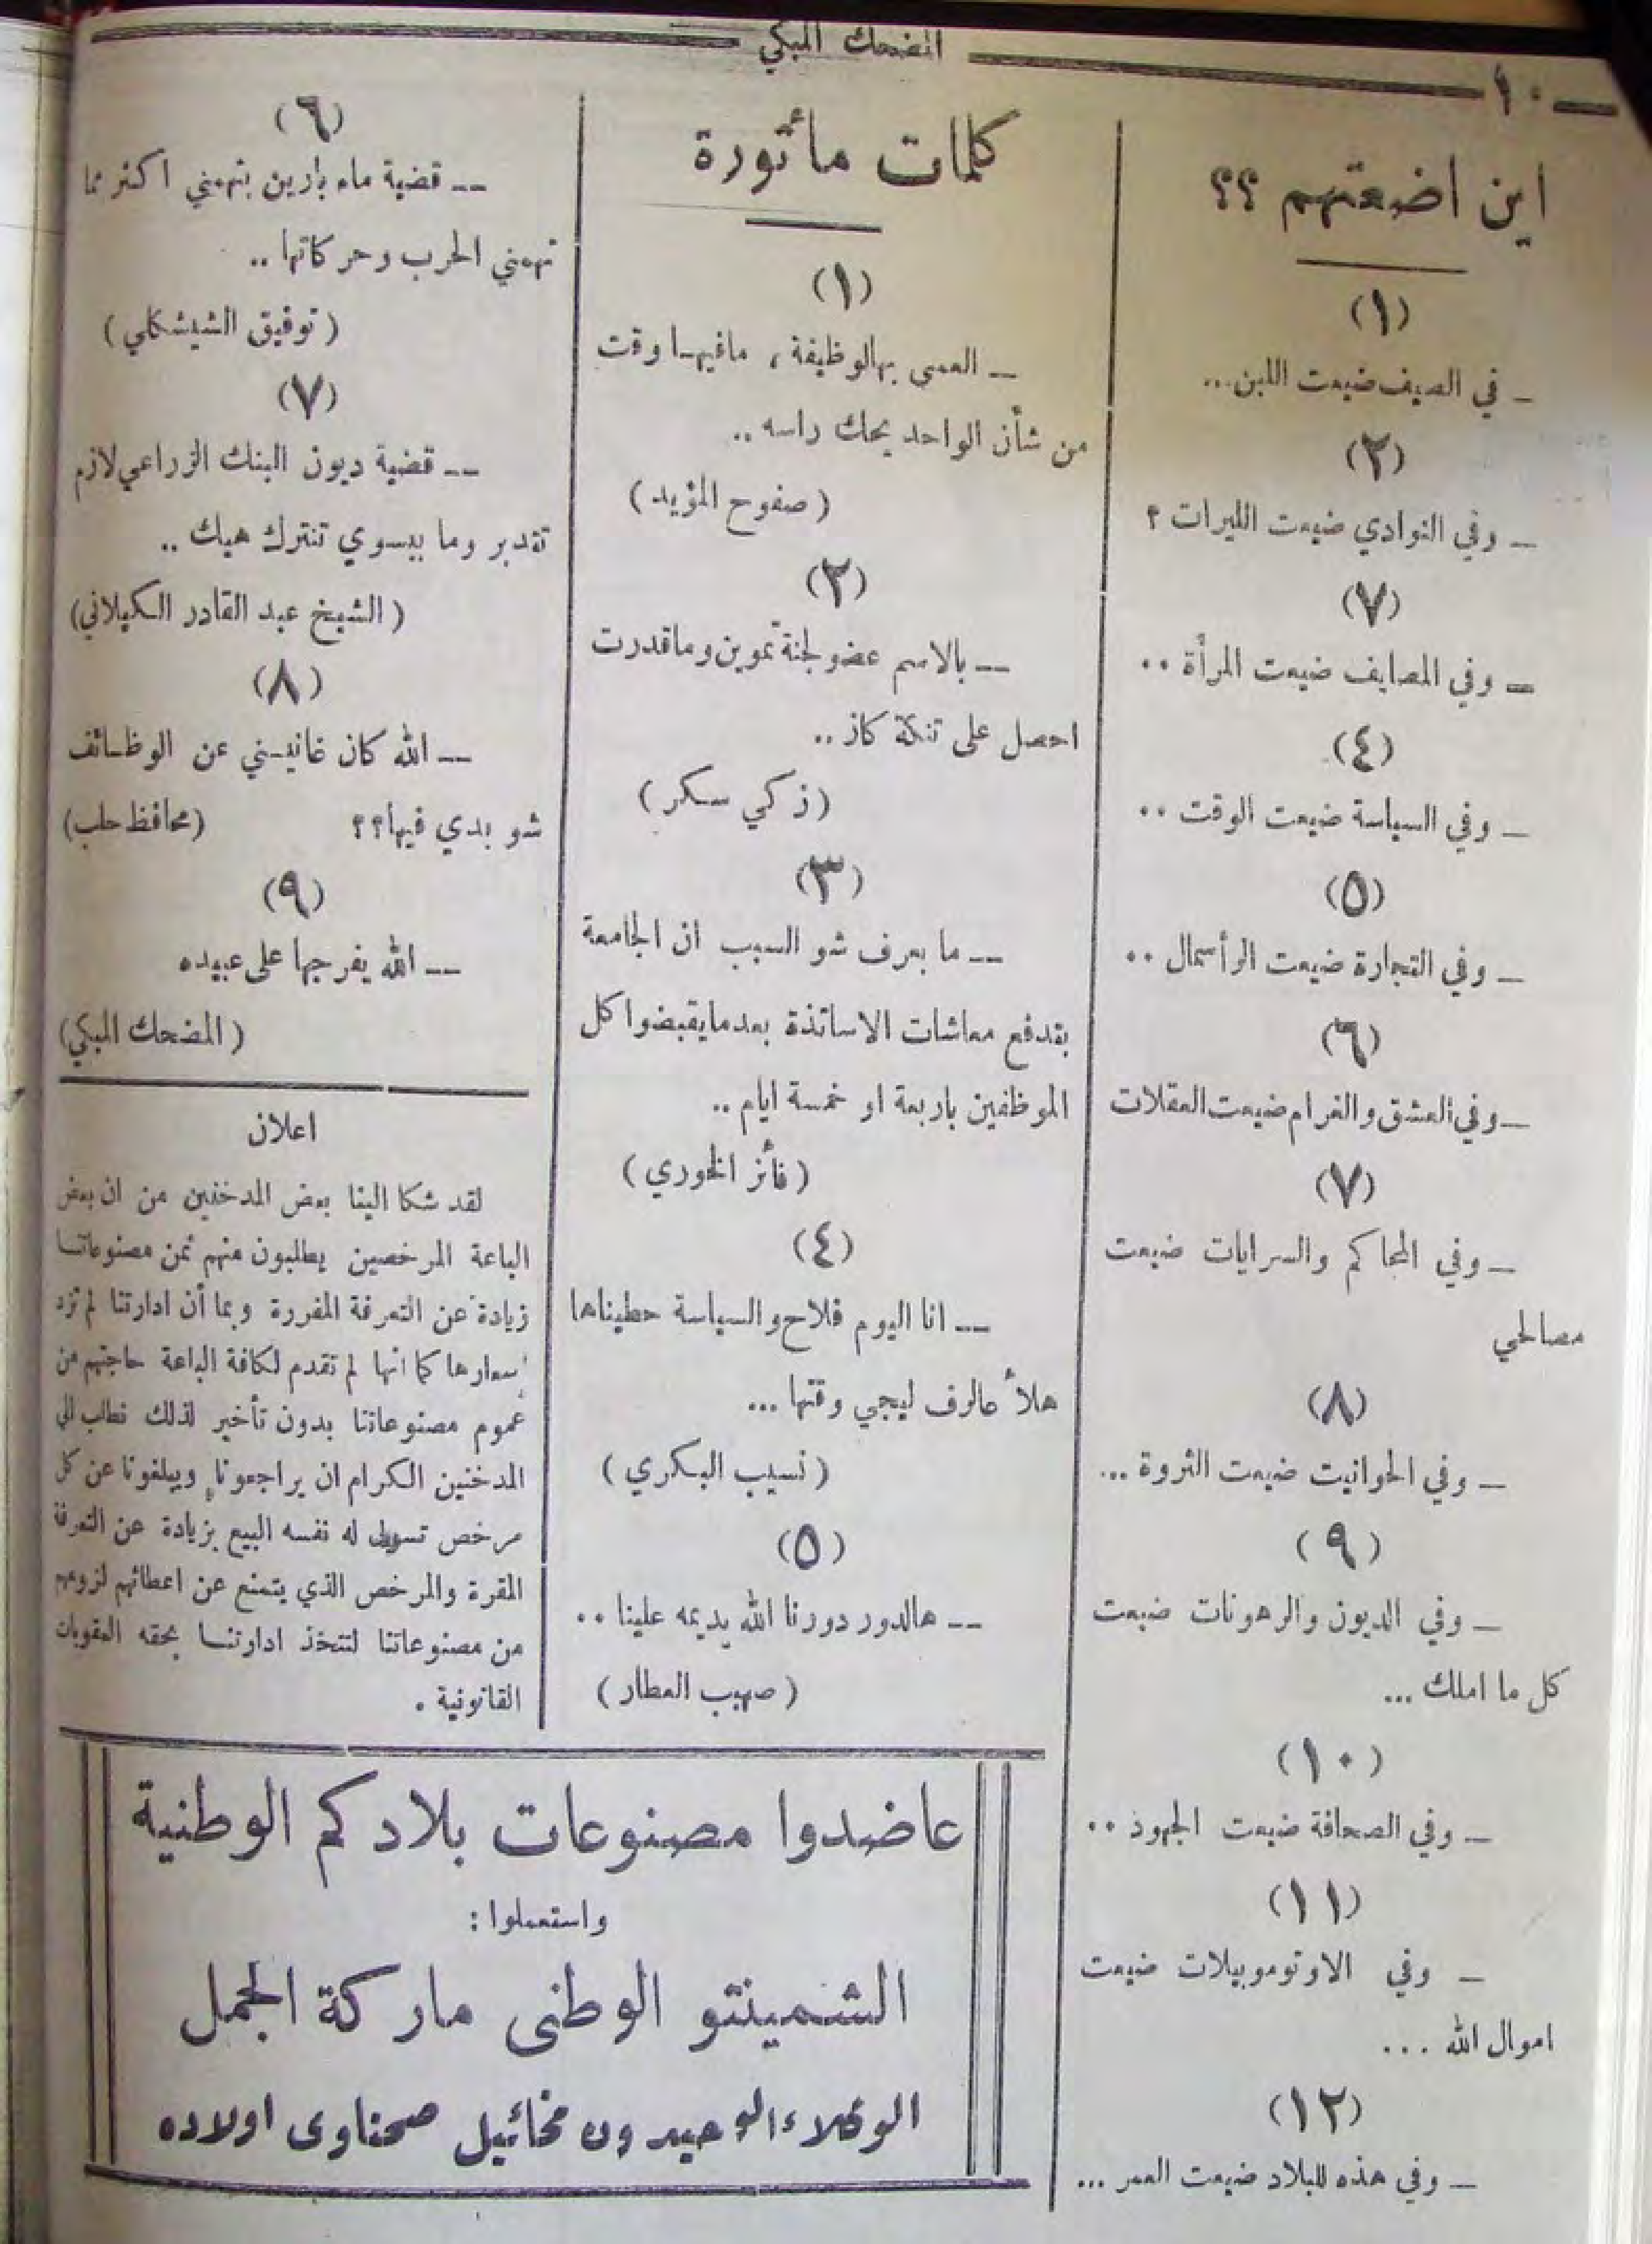 ١٠
المضحك المبكي
اين اضعتهم ؟؟
(١)
— في الصيف ضيعت اللبن...
(٢)
— وفي النوادي ضيعت الليرات ؟
(٧)
— وفي المصايف ضيعت المرأة ..
(٤)
— وفي السياسة ضيعت الوقت ..
(٥)
— وفي التجارة ضيعت الرأسمال ..
(٦)
— وفي العشق والغرام ضيعت العقلات
(٧)
— وفي المحاكم والسرايات ضيعت
مصالحي
(٨)
— وفي الحوانيت ضيعت الثروة ...
(٩)
— وفي الديون والرهونات ضيعت
كل ما املك ...
(١٠)
— وفي الصحافة ضيعت الجهود ..
(١١)
— وفي الاوتوموبيلات ضيعت
اموال الله ...
(١٢)
— وفي هذه البلاد ضيعت العمر ...
كلمات مأثورة
(١)
— العمى بهالوظيفة ، مافيهـا وقت
من شأن الواحد يحك راسه ..
( صفوح المؤيد )
(٢)
— بالاسم عضو لجنة تموين وماقدرت
احصل على تنكة كاز ..
( زكي سكر )
(٣)
— ما بعرف شو السبب ان الجامعة
بقدفع معاشات الاساتذة بعدمايقبضوا كل
الموظفين باربعة او خمسة ايام ..
( فأئز الخوري )
(٤)
— انا اليوم فلاح والسياسة حطيناها
هلأ عالرف ليجي وقتها ...
( نسيب البكري )
(٥)
— هالدور دورنا الله يديمه علينا ..
( صهيب العطار )
(٦)
— قضية ماء بارين بتهمني اكثر مما
تهمني الحرب وحركاتها ..
( توفيق الشيشكلي )
(٧)
— قضية ديون البنك الزراعي لازم
تتدبر وما بيسوي تنترك هيك ..
( الشيخ عبد القادر الكيلاني)
(٨)
— الله كان غانيـني عن الوظـائف
شو بدي فيها؟؟ (محافظ حلب)
(٩)
— الله يفرجها على عبيده
( المضحك المبكي)
اعلان
لقد شكا الينا بعض المدخنين من ان بعض
الباعة المرخصين يطلبون منهم ثمن مصنوعاتنـا
زيادة عن التعرفة المقررة وبما أن ادارتنا لم تزد
اسعارها كما انها لم تقدم لكافة الباعة حاجتهم من
عموم مصنوعاتنا بدون تأخير لذلك نطلب الى
المدخنين الكرام ان يراجعونا ويبلغونا عن كل
مرخص تسول له نفسه البيع بزيادة عن التعرفة
المقرة والمرخص الذي يتمنع عن اعطائهم لزومهم
من مصنوعاتنا لتتخذ ادارتنـا بحقه العقوبات
القانونية .
عاضدوا مصنوعات بلادكم الوطنية
واستعملوا :
الشمينتو الوطنى ماركة الجمل
الوكلاء الوحيدون مخائيل صحناوى اولاده